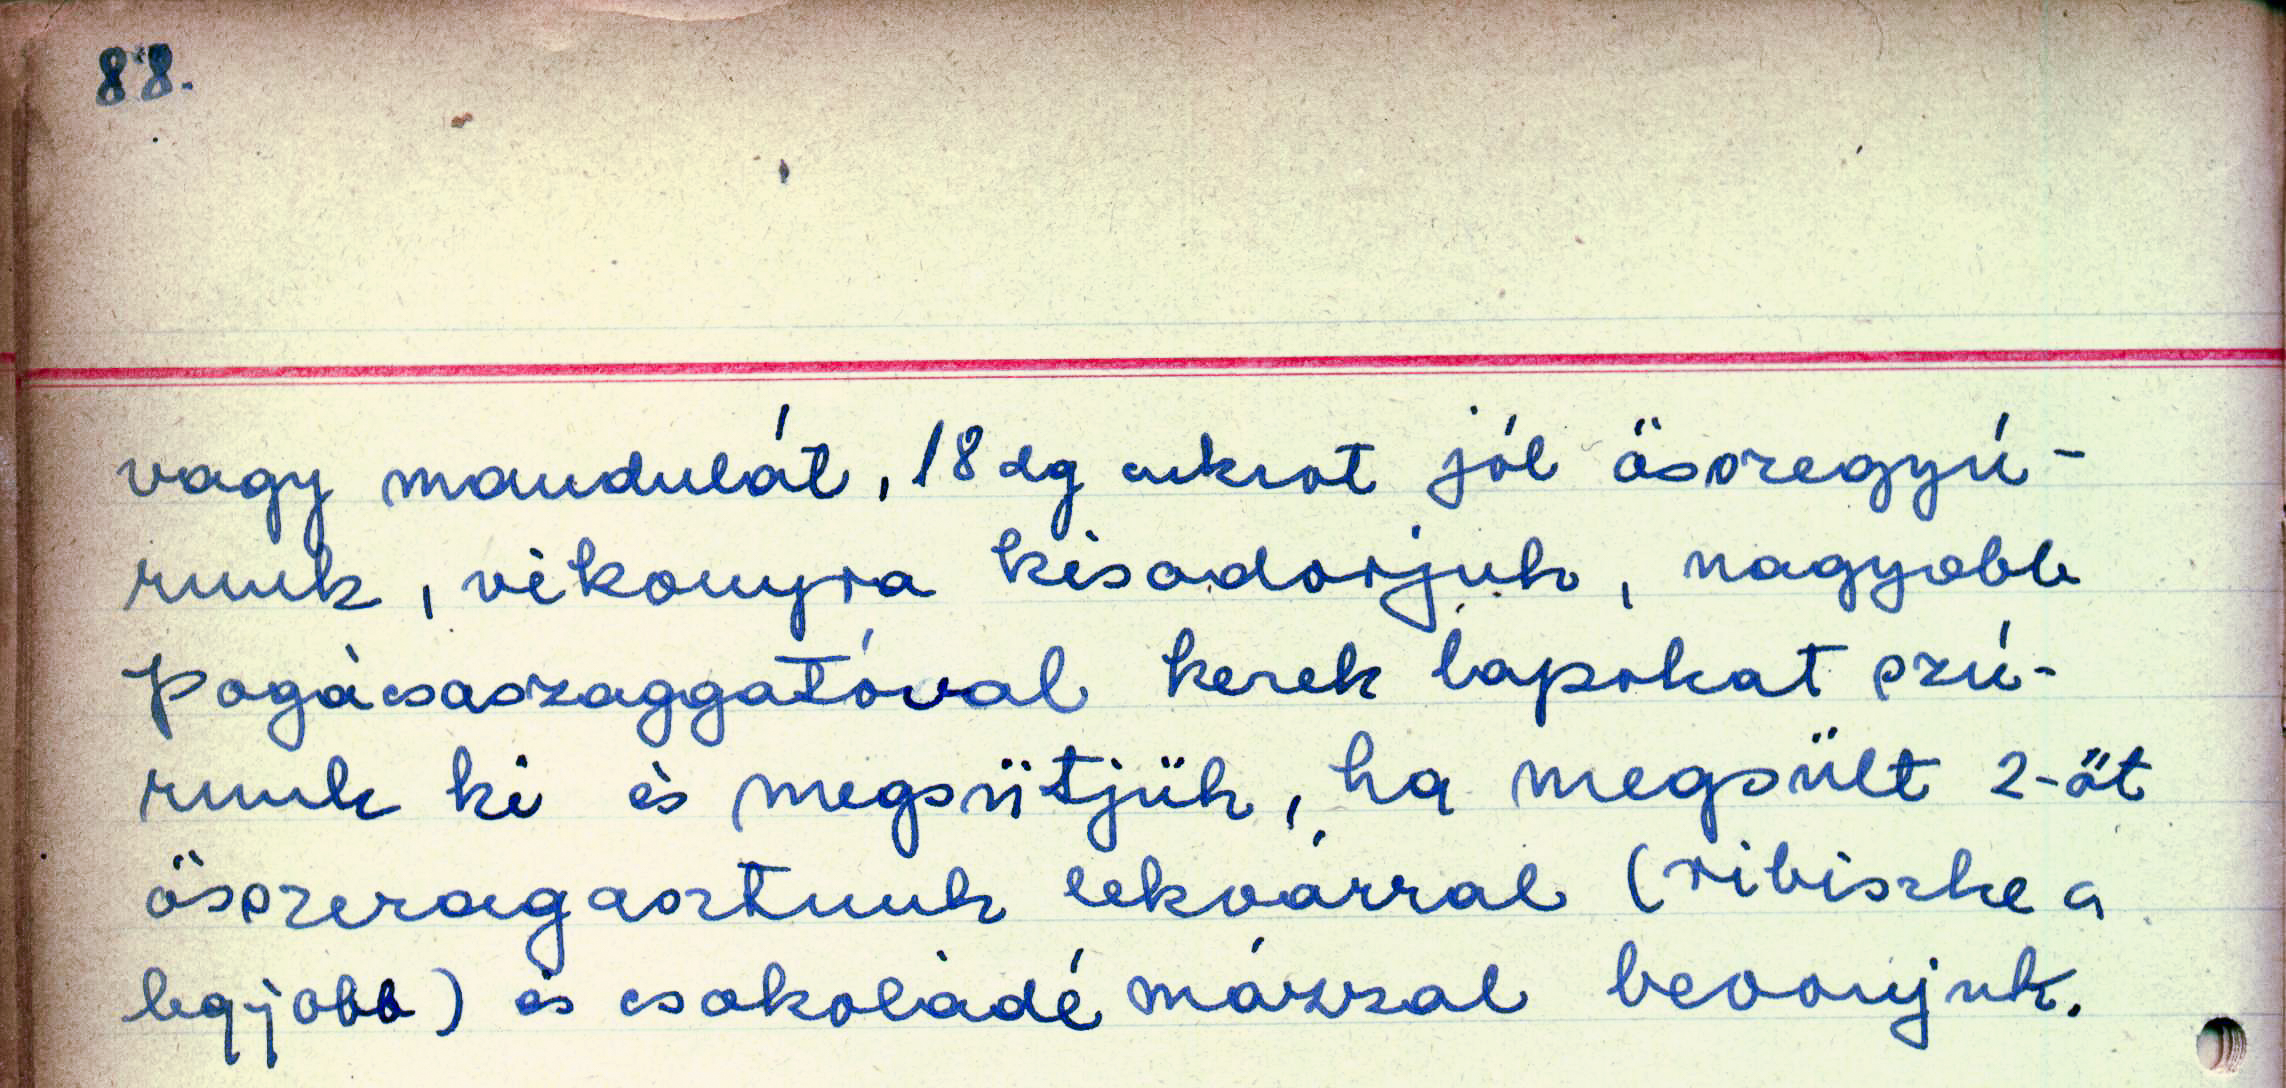 88.
vagy mandulát, 18 dg cukrot jól összegyú-
runk, vékonyra kisodorjuk, nagyobb
pogácsaszaggatóval kerek lapokat szú-
runk ki és megsütjük, ha megsült 2-őt
összeragasztunk lekvárral (ribiszke a
legjobb) és csokoládé mázzal bevonjuk.